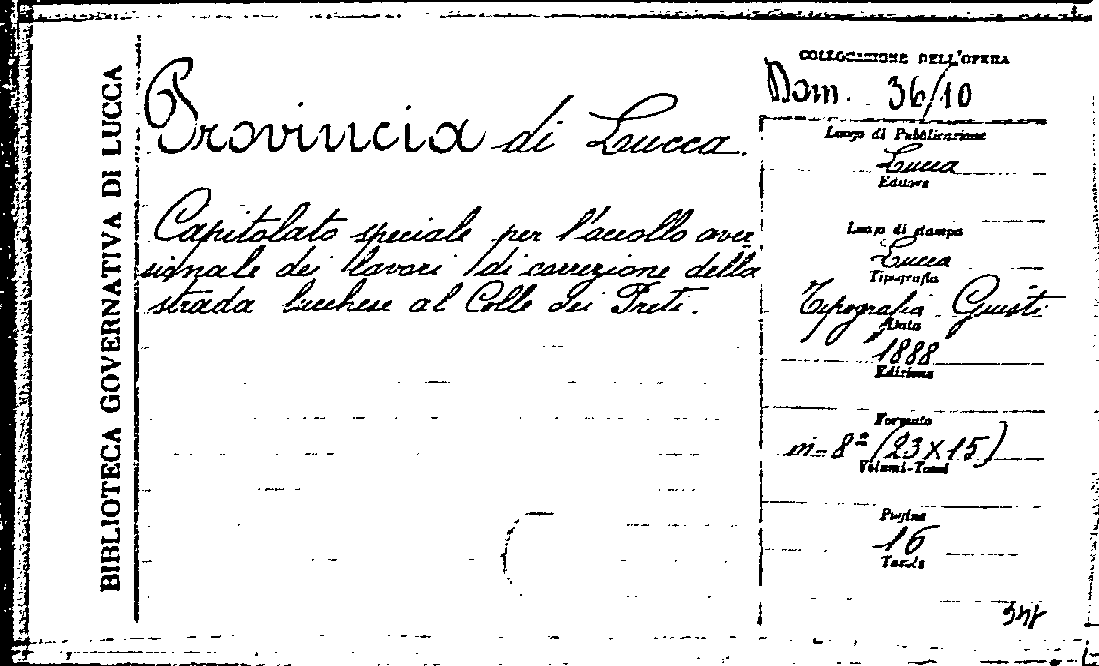 BIBLIOTECA GOVERNATIVA DI LUCCA
Provincia di Lucca.
Capitolato speciale per l'accollo aver
sionale dei lavori di correzione della
strada lucchese al Colle dei Preti.
COLLOCAZIONE DELL'OPERA
Dom. 36/10
Luogo di Pubblicazione
Lucca
Editore
Luogo di stampa
Lucca
Tipografia
Tipografia Giusti
Data
1888
Edizione
Formato
in-8º (23×15)
Volumi-Tomi
Pagine
16
Tavole